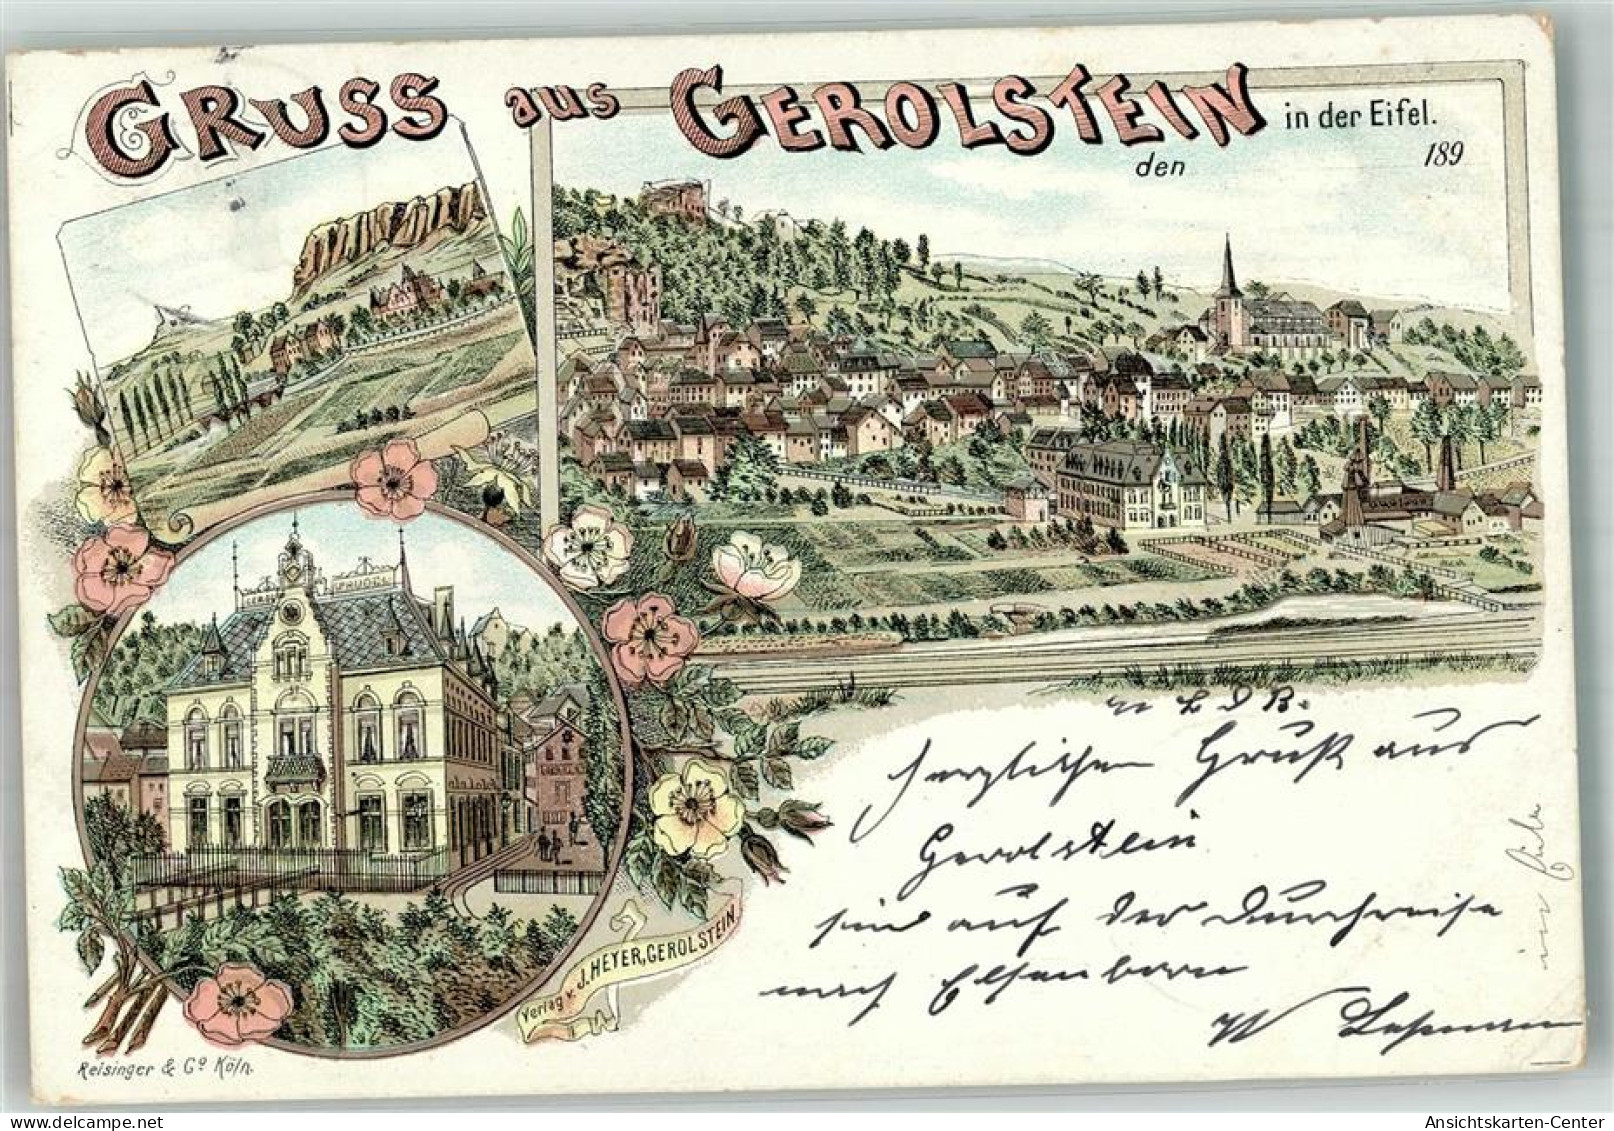 GRUSS aus GEROLSTEIN in der Eifel.
den 189
SPRUDEL
Verlag v. J. HEYER, GEROLSTEIN.
Reisinger & Co Köln.
L D B.
herzlichen Gruß aus
Gerolstein
sind auf der Durchreise
nach Elsenborn
W
Ansichtskarten-Center